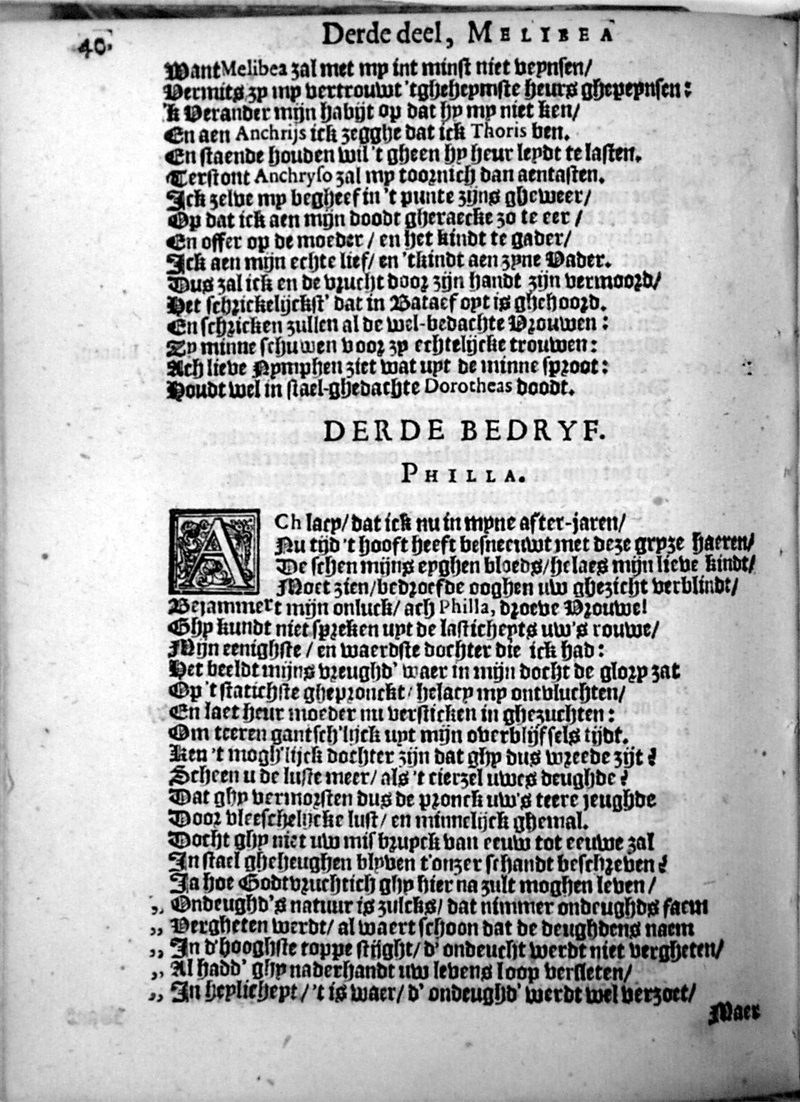 40.
Derde deel, MELIBEA
Want Melibea zal met my int minst niet veynsen/
Vermits zy my vertrouwt 'tgheheymste heurs ghepeynsen:
'k Verander mijn habijt op dat hy my niet ken/
En aen Anchrijs ick zegghe dat ick Thoris ben.
En staende houden wil 't gheen hy heur leydt te lasten.
Terstont Anchryso zal my toornich dan aentasten.
Ick zelve my begheef in 't punte zijns gheweer/
Op dat ick aen mijn doodt gheraecke zo te eer/
En offer op de moeder/ en het kindt te gader/
Ick aen mijn echte lief/ en 'tkindt aen zyne Vader.
Dus zal ick en de vrucht door zijn handt zijn vermoord/
Het schrickelijckst' dat in Bataef opt is ghehoord.
En schricken zullen al de wel-bedachte Vrouwen:
Zy minne schuwen voor zy echtelijcke trouwen:
Ach lieve Nymphen ziet wat uyt de minne sproot:
Houdt wel in stael-ghedachte Dorotheas doodt.
DERDE BEDRYF.
PHILLA.
ACh lacy/ dat ick nu in myne after-jaren/
Nu tijd 't hooft heeft besneeuwt met deze gryze haeren/
De schen mijns eyghen bloeds/ helaes mijn lieve kindt/
Moet zien/ bedroefde ooghen uw ghezicht verblindt/
Bejammert mijn onluck/ ach Philla, droeve Vrouwe!
Ghy kundt niet spreken uyt de lasticheyts uw's rouwe/
Mijn eenighste/ en waerdste dochter die ick had:
Het beeldt mijns vreughd' waer in mijn docht de glory zat
Op 't statichste ghepronckt/ helacy my ontvluchten/
En laet heur moeder nu versticken in ghezuchten:
Om teeren gantsch'lijck uyt mijn overblijfsels tijdt.
Ken 't mogh'lijck dochter zijn dat ghy dus wreede zijt?
Scheen u de luste meer/ als 't cierzel uwes deughde?
Dat ghy vermorsten dus de pronck uw's teere jeughde
Door vleeschelijcke lust/ en minnelijck ghemal.
Docht ghy niet uw misbruyck van eeuw tot eeuwe zal
In stael gheheughen blyven t'onzer schandt beschreven?
Ja hoe Godtvruchtich ghy hier na zult moghen leven/
„ Ondeughd's natuur is zulcks/ dat nimmer ondeughds faem
„ Vergheten werdt/ al waert schoon dat de deughdens naem
„ In d'hooghste toppe stijght/ d' ondeucht werdt niet vergheten/
„ Al hadd' ghy naderhandt uw levens loop versleten/
„ In heylicheyt/ 't is waer/ d' ondeughd' werdt wel verzoet/
Maer